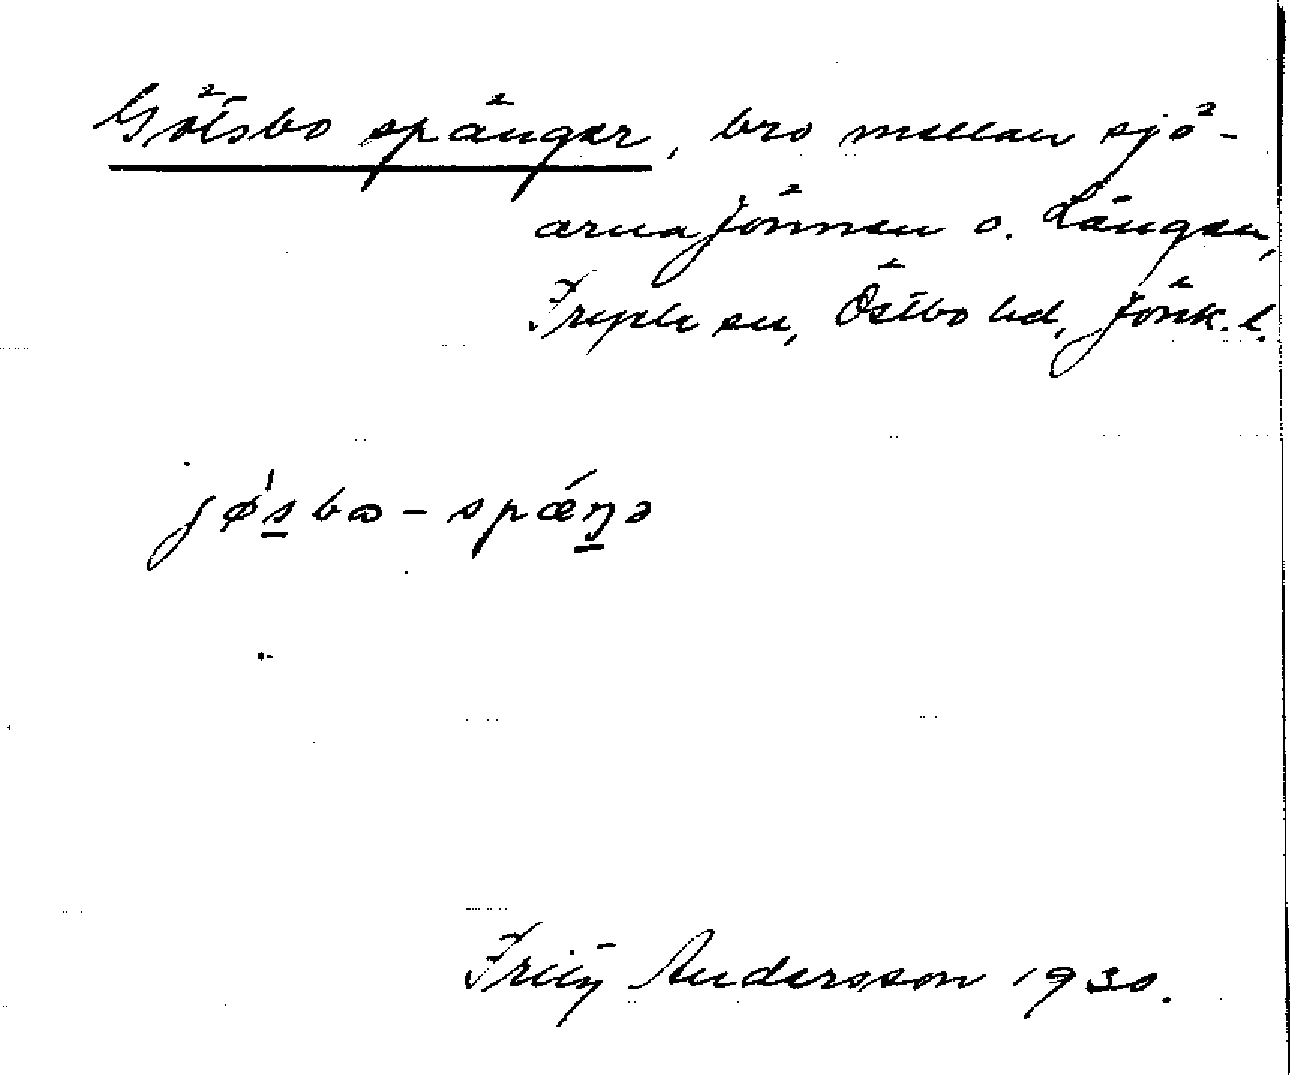 Götsbo spänger, bro mellan sjö-
arna Jönnen o. Lången,
Fryele sn, Östbo hd, Jönk. l.
jǿsbɷ – spǽŋə
Fritz Andersson 1930.